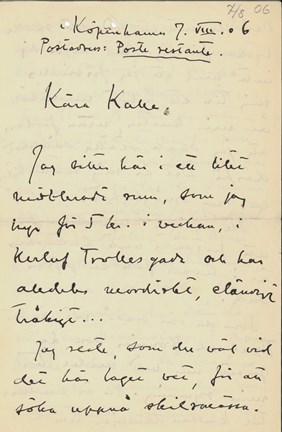 7/8 06
Köpenhamn 7. VIII. 06
Postadress: Poste restante.
Kära Kalle.
Jag sitter här i ett litet
möblerade rum, som jag
hyr för 5 kr. i veckan, i
Herluf Trolles gade och har
alldeles neordiskt, eländigt
tråkigt...
Jag reste, som du väl vid
det här laget vet, för att
söka uppnå skilsmässa.